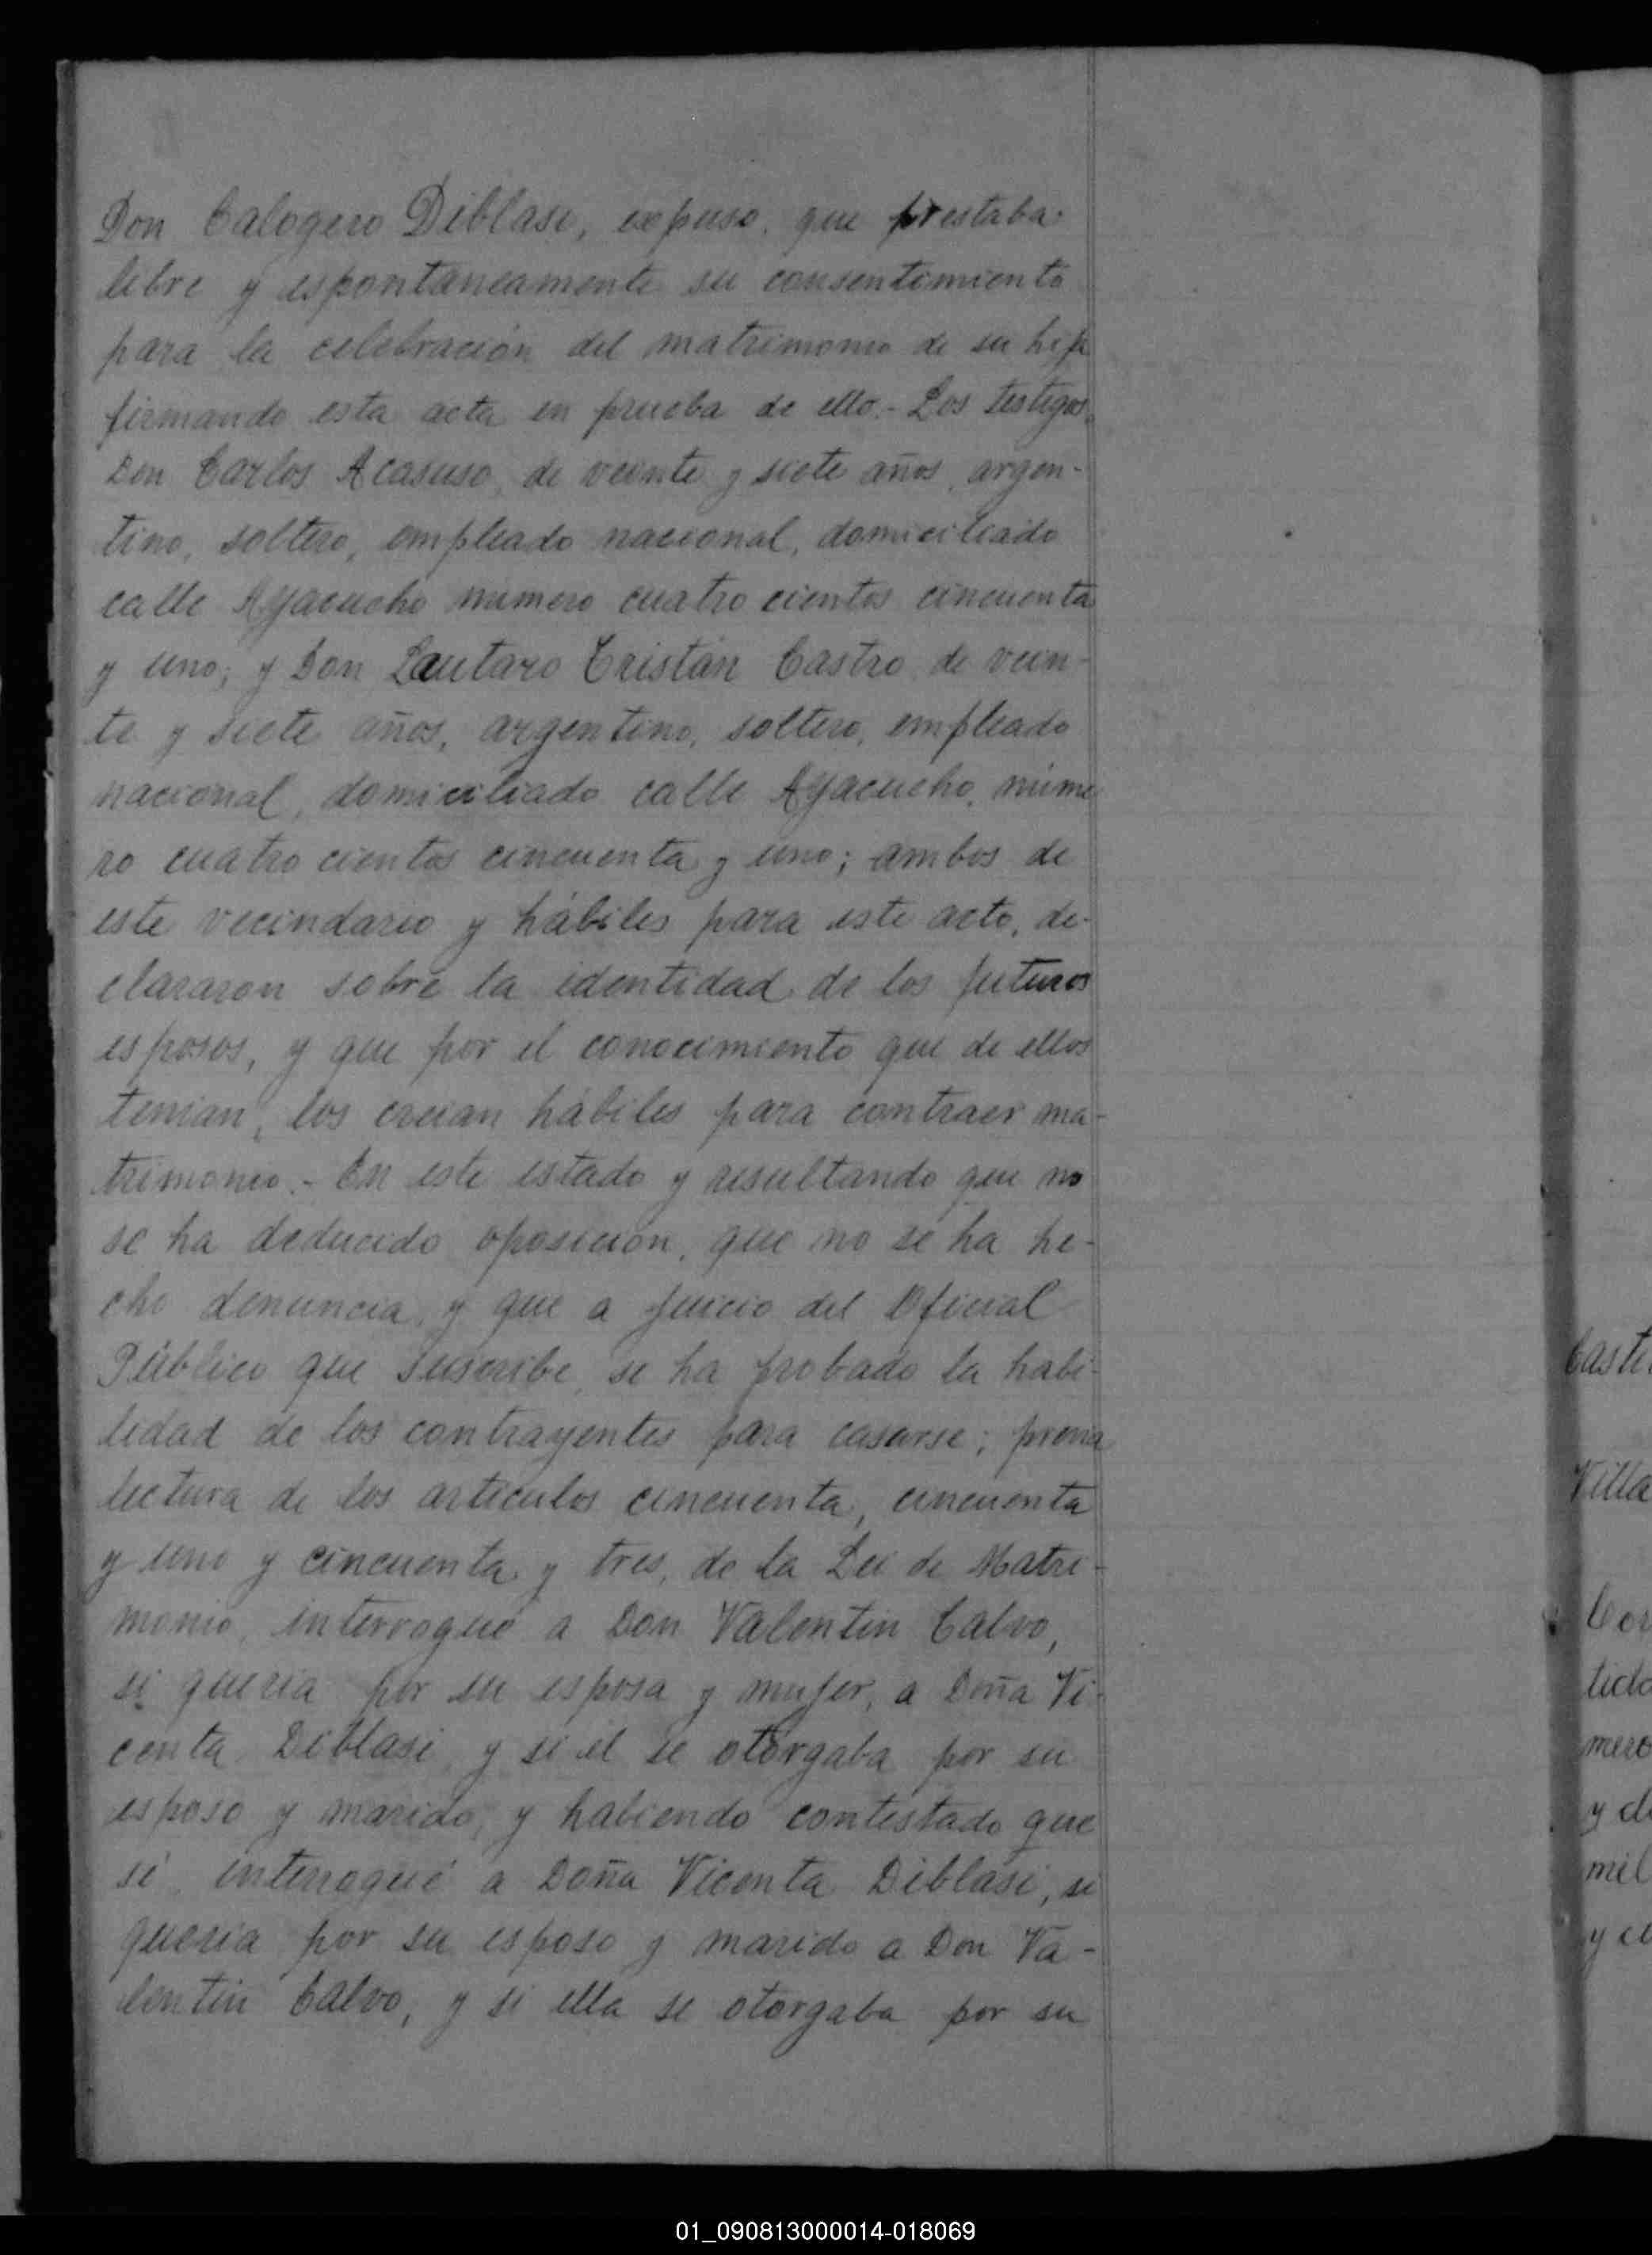 Don Calogero Diblasi, expuso, que prestaba
libre y espontaneamente su consentimiento
para la celebración del matrimonio de su hija
firmando esta acta en prueba de ello.- Los testigos,
Don Carlos Acasuso, de veinte y siete años, argen-
tino, soltero, empleado nacional, domiciliado
calle Ayacucho número cuatro cientos cincuenta
y uno; y Don Lautaro Tristán Castro, de vein-
te y siete años, argentino, soltero, empleado
nacional, domiciliado calle Ayacucho, núme
ro cuatro cientos cincuenta y uno; ambos de
este vecindario y hábiles para este acto, de-
clararon sobre la identidad de los futuros
esposos, y que por el conocimiento que de ellos
tenian, los creian hábiles para contraer ma-
trimonio.- En este estado y resultando que no
se ha deducido oposición, que no se ha he-
cho denuncia, y que a juicio del Oficial
Público que suscribe, se ha probado la habi-
lidad de los contrayentes para casarse; previa
lectura de los artículos cincuenta, cincuenta
y uno y cincuenta y tres, de la Lei de Matri-
monio, interrogué a Don Valentin Calvo,
si queria por su esposa y mujer, a Doña Vi-
centa Diblasi, y si él se otorgaba por su
esposo y marido, y habiendo contestado que
sí, interrogué a Doña Vicenta Diblasi, si
queria por su esposo y marido a Don Va-
lentin Calvo, y si ella se otorgaba por su
Villa
mero
mil
01_090813000014-018069